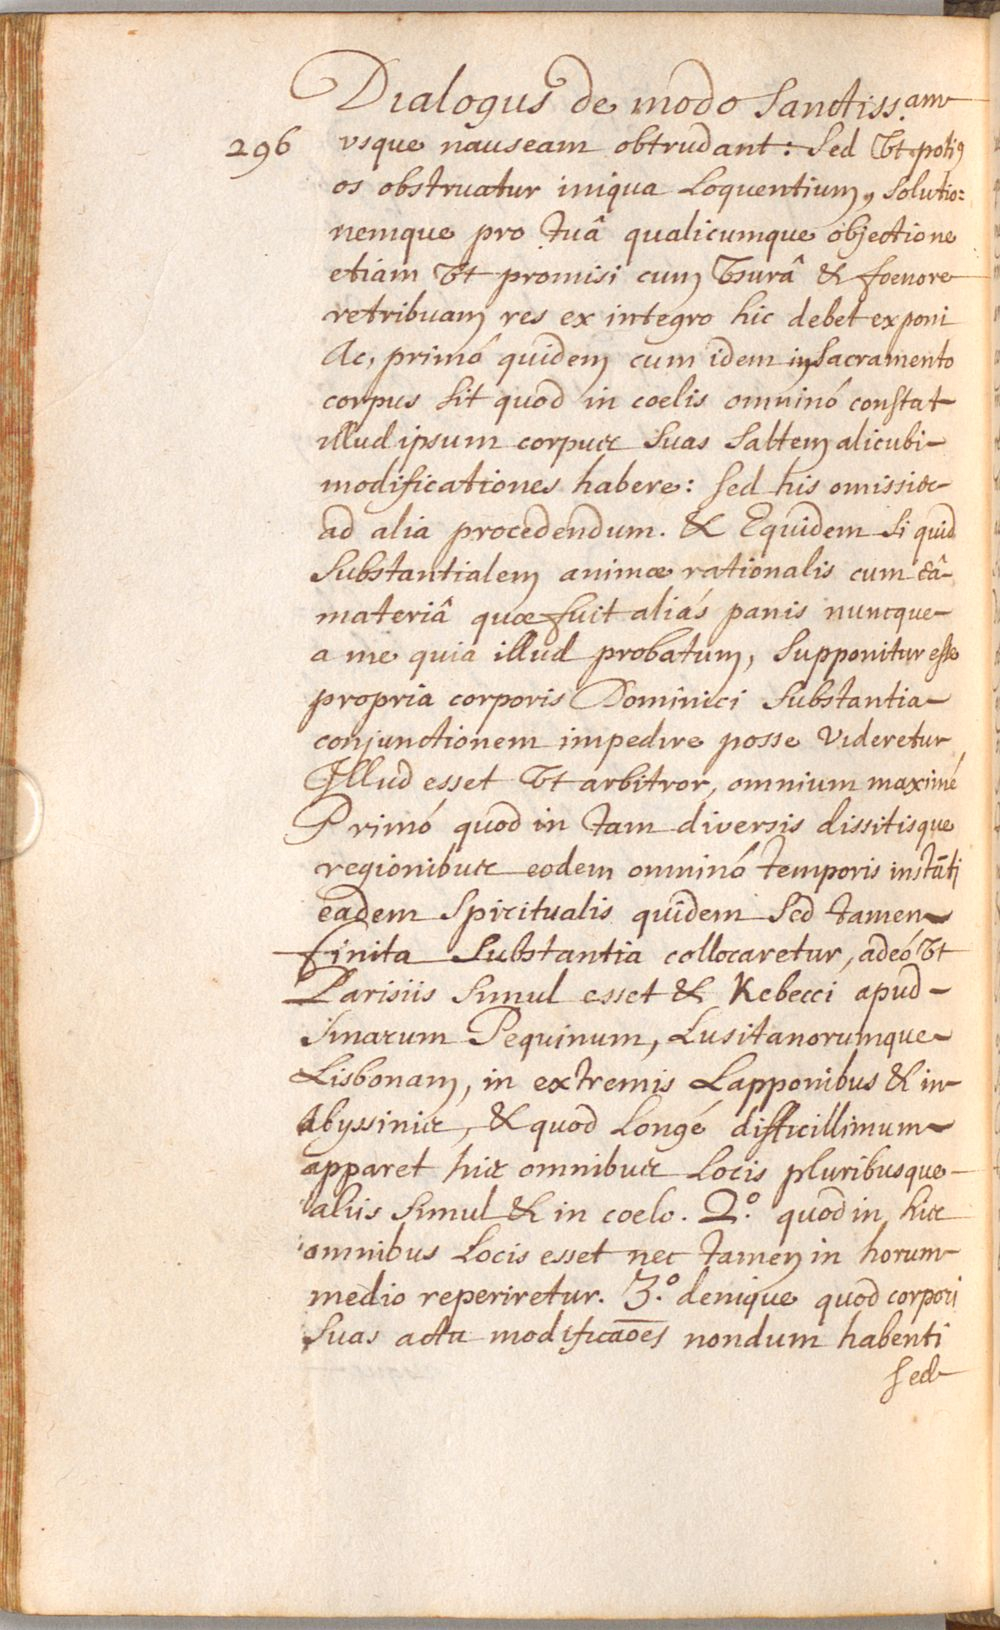 Dialogus de modo Sanctiss.am
296
usque nauseam obtrudant: Sed Ut poti9
os obstruatur iniqua Loquentium, Solutio=
nemque pro tuâ qualicumque objectione
etiam Ut promisi cum Usurâ & foenore
retribuam res ex integro hic debet exponi
Ac, primó quidem cum idem in Sacramento
corpus sit quod in coelis omninó constat
illud ipsum corpus Suas Saltem alicubi
modificationes habere: Sed his omissis
ad alia procedendum. & Equidem Si quid
Substantialem animæ rationalis cum eâ
materiâ quæ fuit aliás panis nuncque
a me quia illud probatum, Supponitur esse
propria corporis Dominici Substantia
conjunctionem impedire posse Videretur
Illud esset Ut arbitror, omnium maximé
Primó quod in tam diversis dissitisque
regionibus eodem omninó temporis instāti
eadem Spiritualis quidem Sed tamen
finita Substantia collocaretur, adeó Ut
Parisiis Simul esset & Kebecci apud
Sinarum Pequinum, Lusitanorumque
Lisbonam, in extremis Lapponibus & in
Abyssinis, & quod Longé difficillimum
apparet his omnibus Locis pluribusque
aliis Simul & in coelo. 2.º quod in his
omnibus Locis esset nec tamen in horum
medio reperiretur. 3.º denique quod corpori
Suas actu modificaōes nondum habenti
Sed